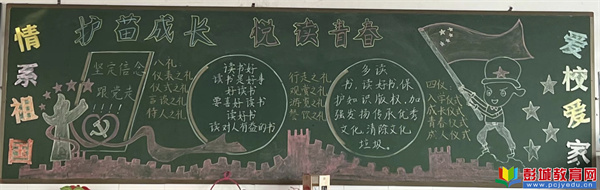 护苗成长 悦读青春
情系祖国
坚定信念
跟党走
!!!!
八礼
仪表之礼
仪式之礼
言谈之礼
待人之礼
读书好
读书是好事
好读书
要喜好读书
读好书
读对人有益的书
行走之礼
观赏之礼
游览之礼
餐饮之礼
多读
书,读好书,保
护知识版权,加
强爱物传承优秀
文化,清除文化
垃圾。
四仪
入学仪式
成长仪式
青春仪式
成人仪式
爱校爱家
彭城教育网
www.pcjyedu.cn